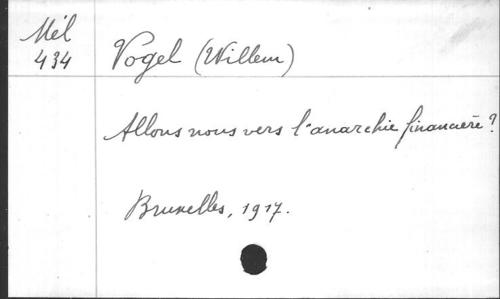 Mél
434
Vogel (Willem)
Allons nous vers l'anarchie financière?
Bruxelles, 1917.